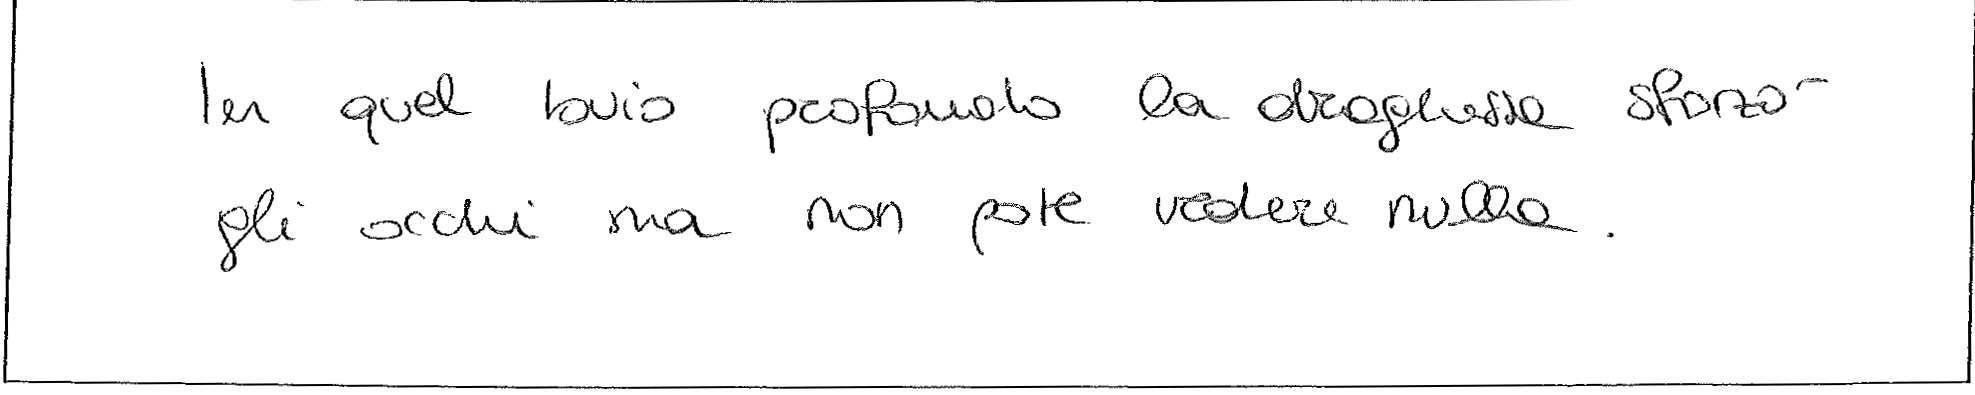 In quel buio profondo la draghessa sforzò
gli occhi ma non pote vedere nulla.